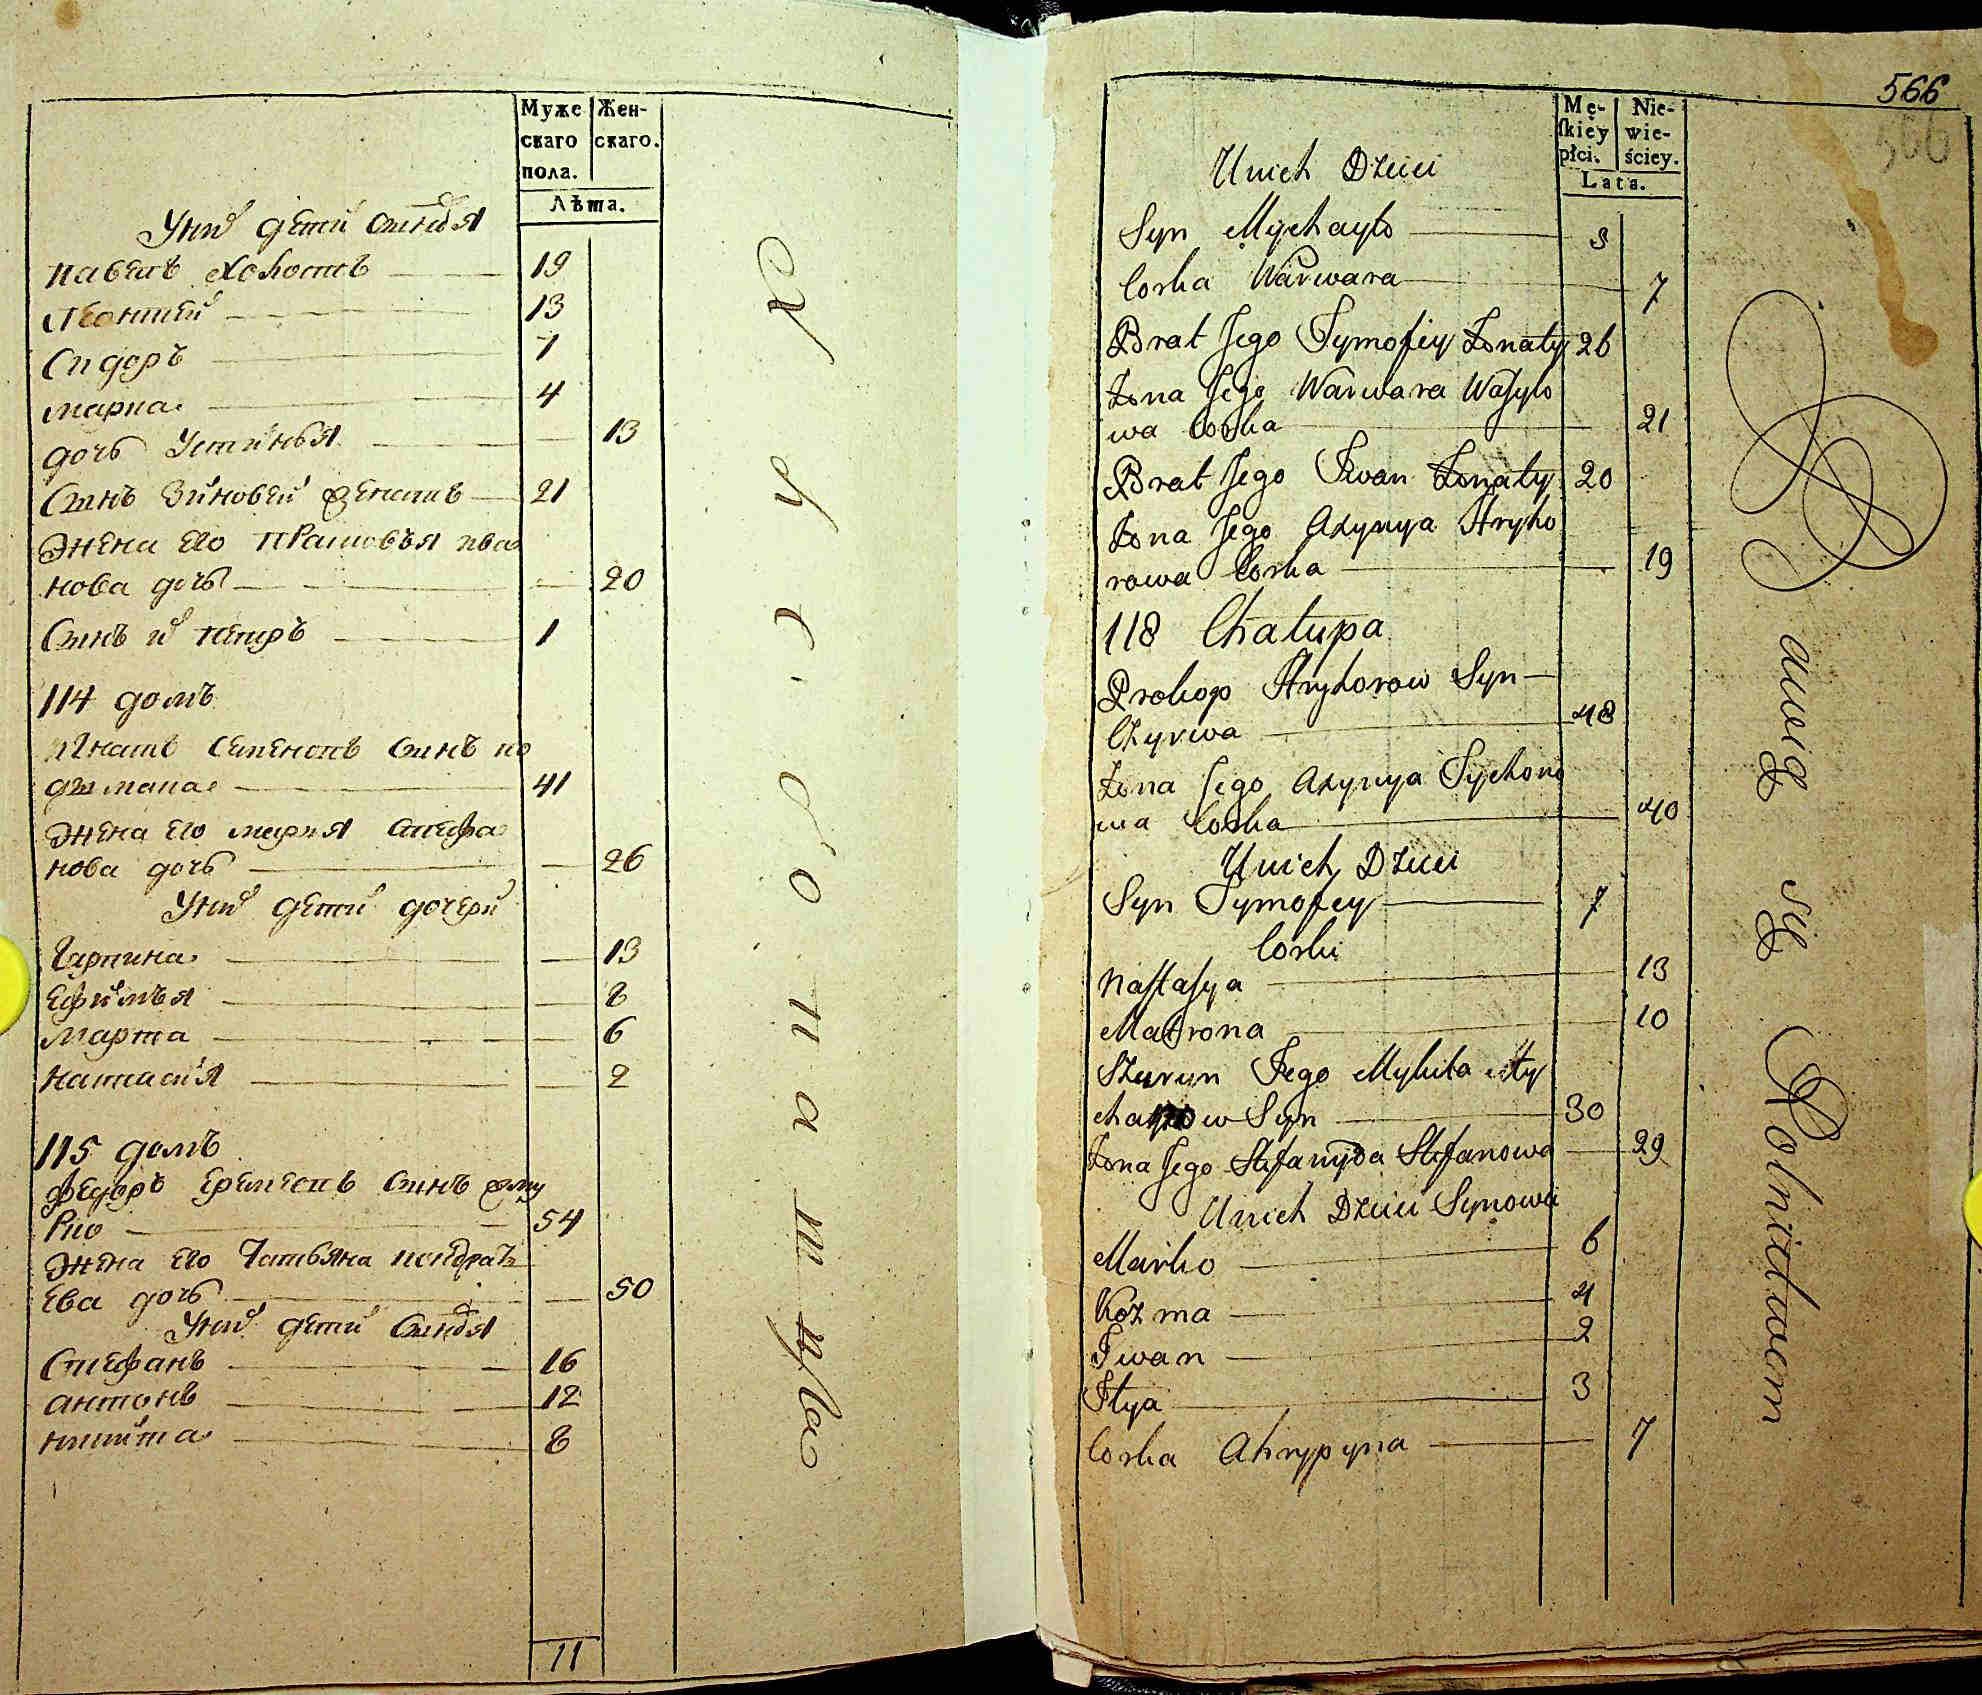 Муже
скаго
пола.
Жен-
скаго.
Лѣта.
Унихъ дети синовя
Павелъ холостъ 19
Леонтей 13
Сидоръ 7
марка 4
дочь Устинья 13
Синъ Зиновей женатъ 21
Жена его Прасковья ива
нова дочь 20
Синъ и Петръ 1
114 домъ
Игнатъ Семеновъ синъ
41
Жена его мария Стефа
нова дочь 26
Унихъ дети дочери
Гарпина 13
Ефимья 8
Марта 6
Настасия 2
115 домъ
Федоръ Еремеевъ Синъ
54
Жена его Татьяна кондрать
ева дочь 50
Унихъ дети Синовя
Стефанъ 16
антонъ 12
никита 8
11
566
566
Mę-
skiéy
płci.
Nie-
wie-
ściey.
Lata.
Unich Dzieci
Syn Mychayło 9
Corka Warwara 7
Brat Jego Tymofiy Żonaty 26
Żona Jego Warwara Wasylo
wa Corka 21
Brat Jego Iwan Żonaty 20
Żona Jego Axynya Hryho
rowa Corka 19
118 Chałupa
Prokop Hryhorow Syn
48
Żona Jego Axynya Tychono
wa Corka 40
Unich Dzieci
Syn Tymofey 7
Corki
Nastasya 13
Matrona 10
Szuryn Jego Mykita My
chayłow Syn 30
Żona Jego Stefanyda Stefanowa 29
Unich Dzieci Synowie
Marko 6
Kozma 4
Iwan 2
Ilya 3
Corka Ahrypyna 7
bawią się Rolnictwem